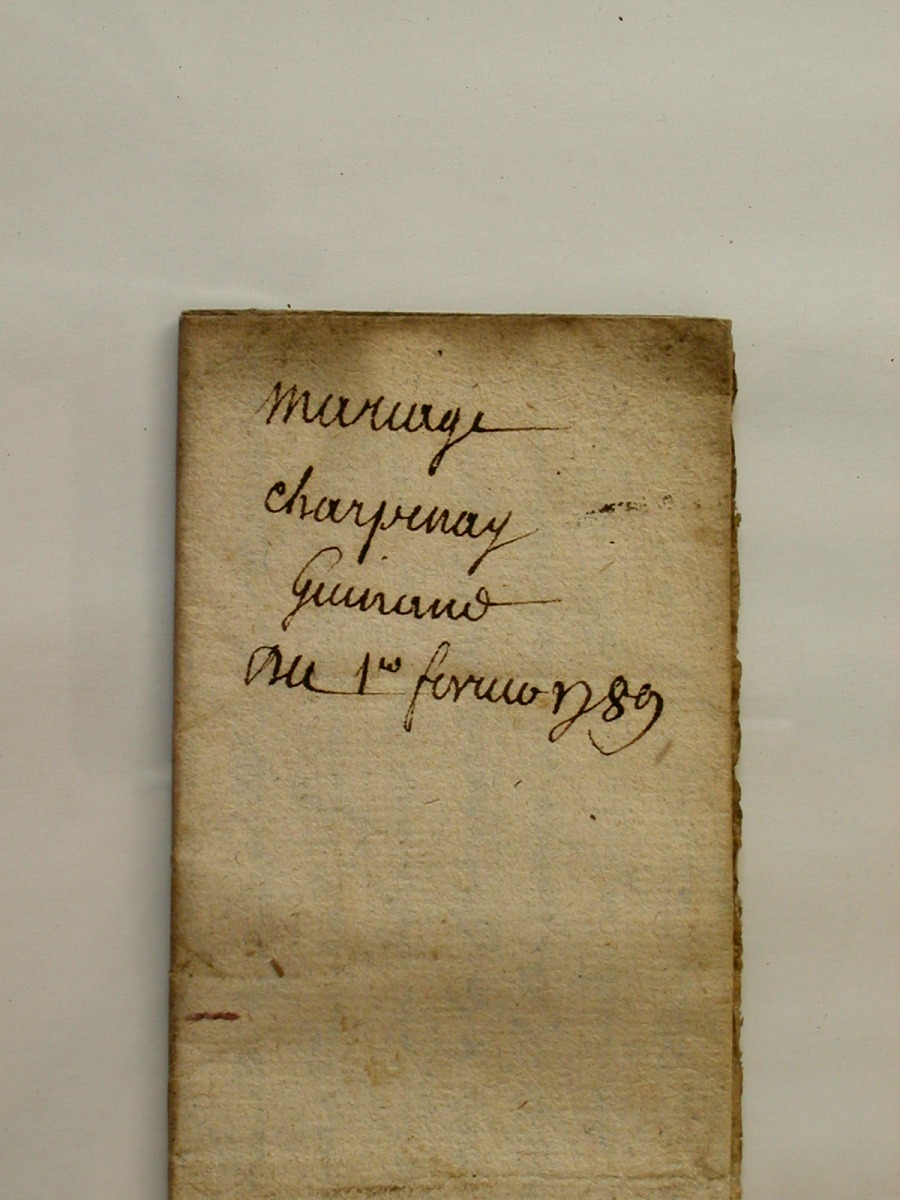 mariage
charpenay
Guinand
Du 1er fevrier 1789